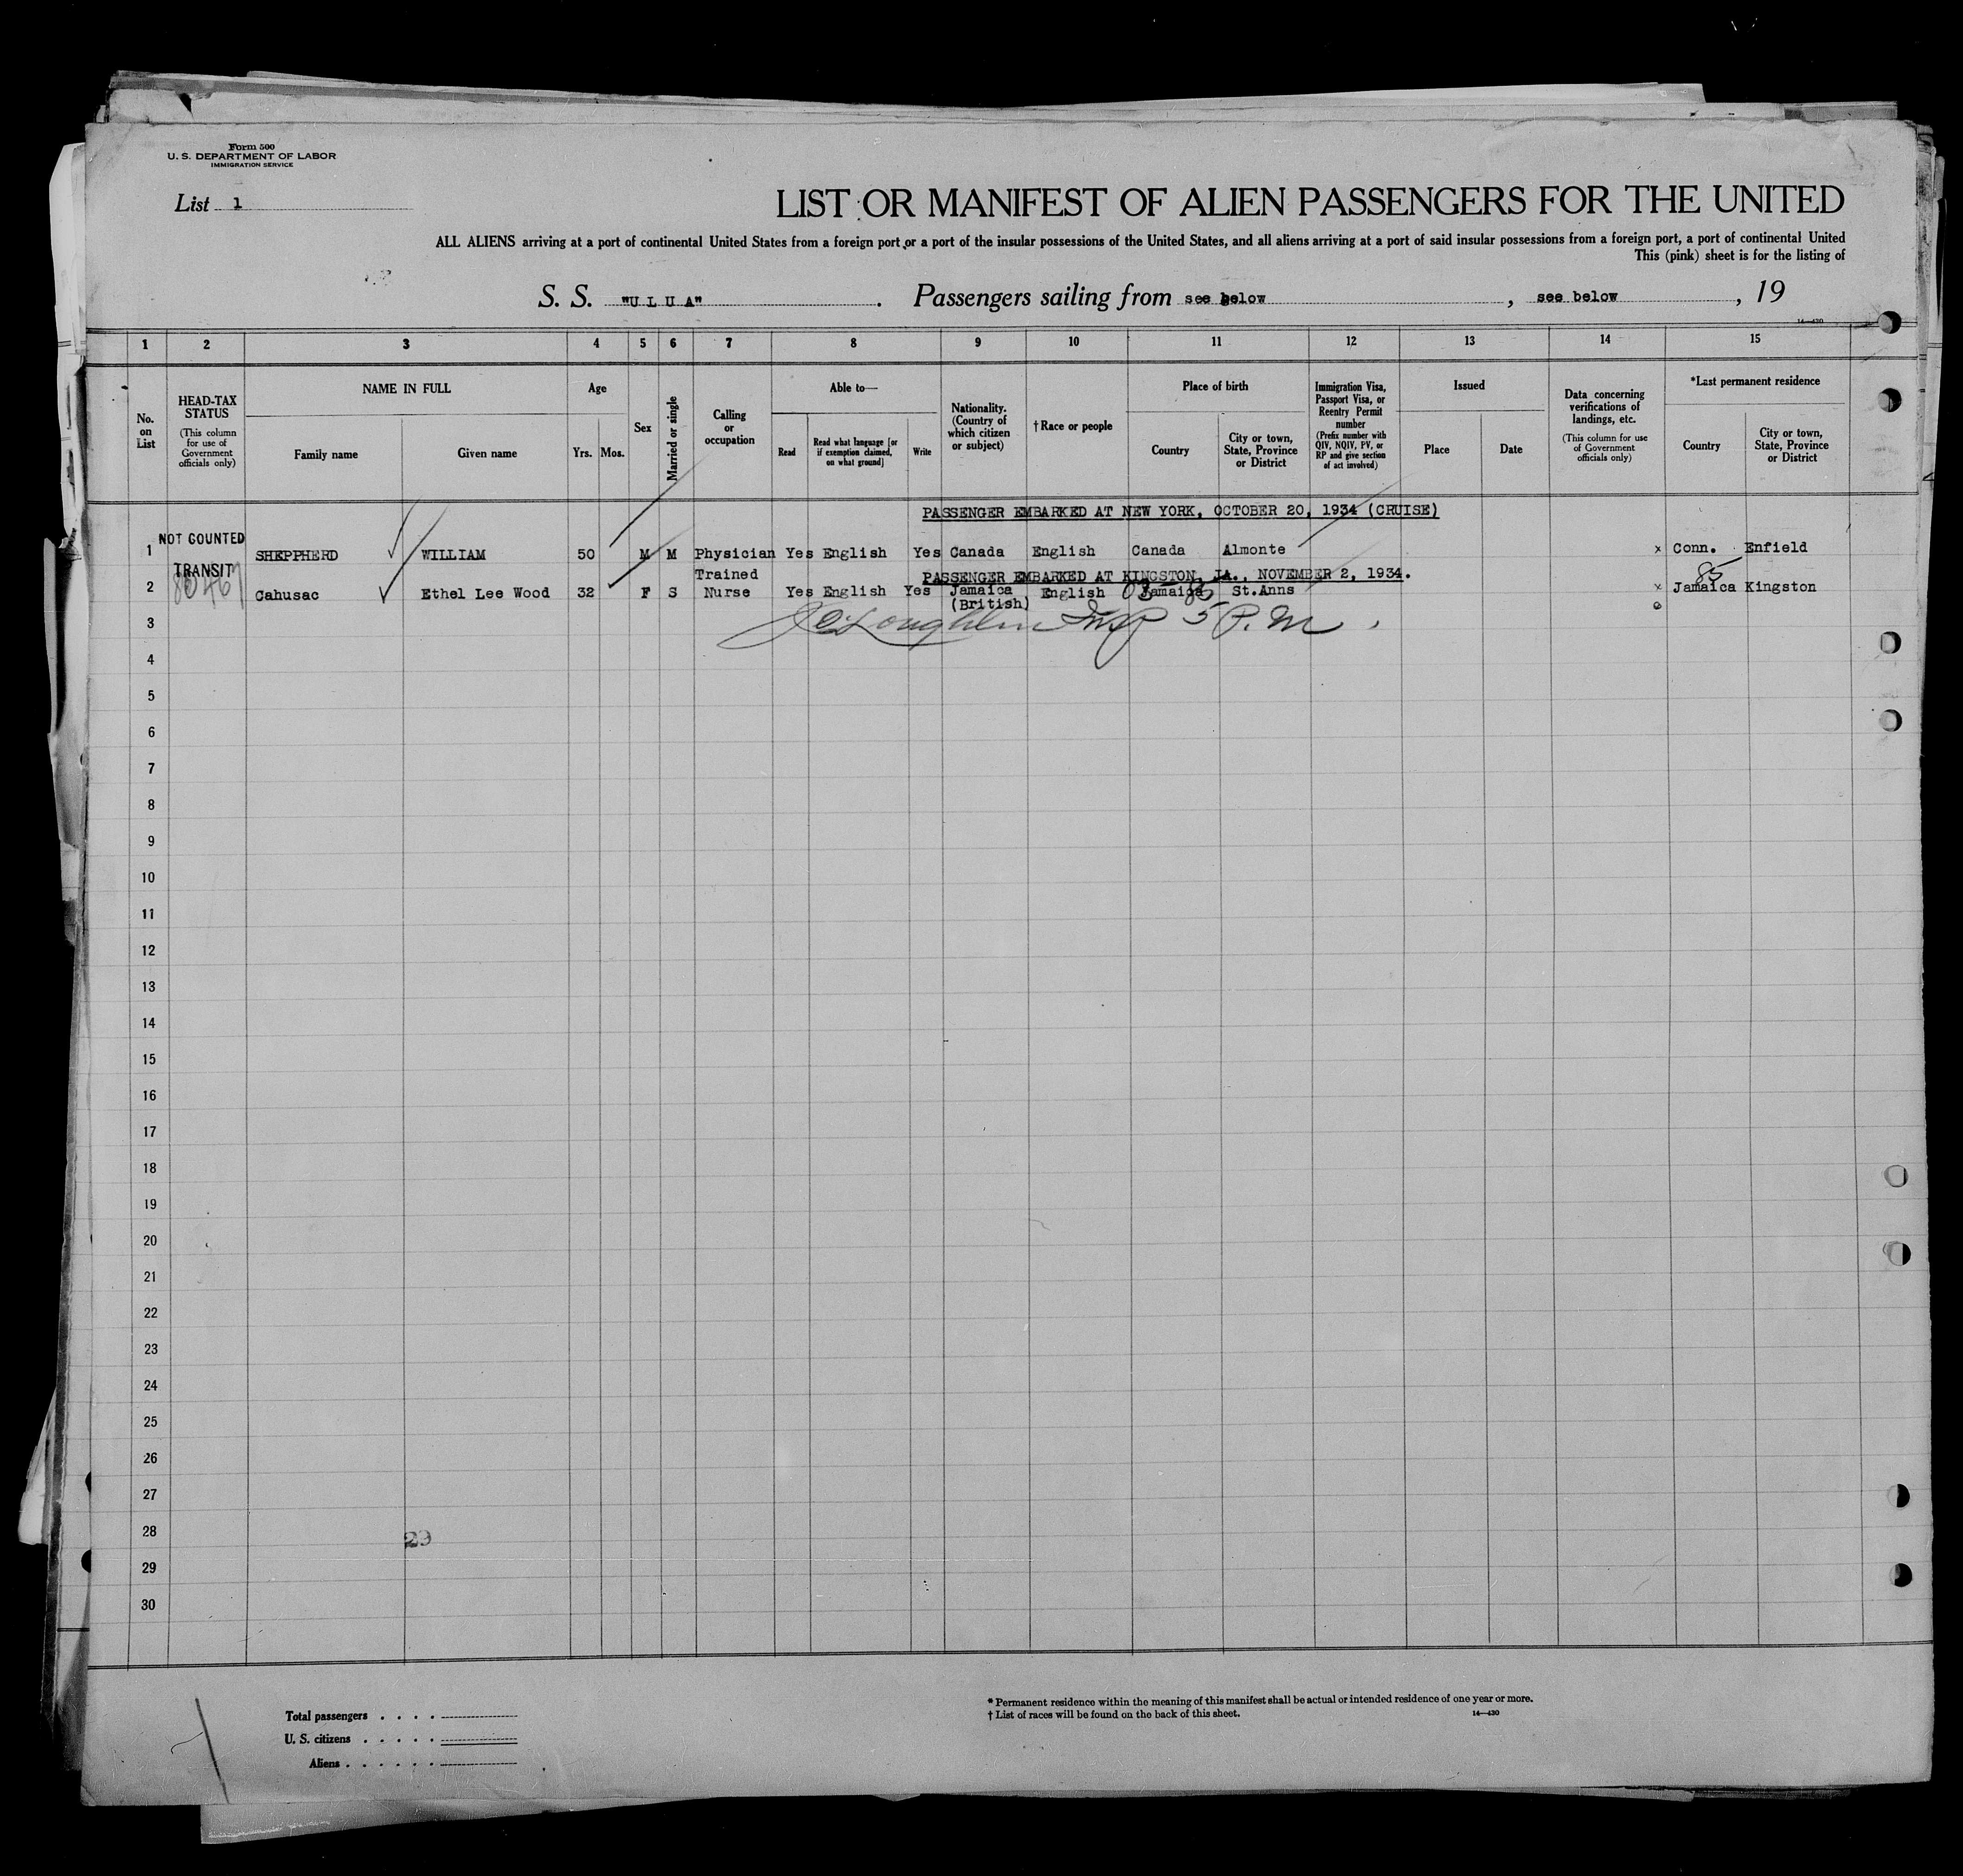 Form 500
U. S. DEPARTMENT OF LABOR
IMMIGRATION SERVICE
List 1
LIST OR MANIFEST OF ALIEN PASSENGERS FOR THE UNITED
ALL ALIENS arriving at a port of continental United States from a foreign port or a port of the insular possessions of the United States, and all aliens arriving at a port of said insular possessions from a foreign port, a port of continental United
This (pink) sheet is for the listing of
S. S. "U L U A". Passengers sailing from see below, see below, 19
14—430
1 2 3 4 5 6 7 8 9 10 11 12 13 14 15
No. on List
HEAD-TAX STATUS
(This column for use of Government officials only)
NAME IN FULL
Family name
Given name
Age
Yrs. Mos.
Sex
Married or single
Calling or occupation
Able to—
Read
Read what language [or if exemption claimed, on what ground]
Write
Nationality. (Country of which citizen or subject)
†Race or people
Place of birth
Country
City or town, State, Province or District
Immigration Visa, Passport Visa, or Reentry Permit number
(Prefix number with QIV, NQIV, PV, or RP and give section of act involved)
Issued
Place
Date
Data concerning verifications of landings, etc.
(This column for use of Government officials only)
*Last permanent residence
Country
City or town, State, Province or District
PASSENGER EMBARKED AT NEW YORK, OCTOBER 20, 1934 (CRUISE)
NOT COUNTED
1 SHEPPHERD WILLIAM 50 M M Physician Yes English Yes Canada English Canada Almonte x Conn. Enfield
PASSENGER EMBARKED AT KINGSTON, JA., NOVEMBER 2, 1934.
TRANSIT
85
2 Cahusac Ethel Lee Wood 32 F S Trained Nurse Yes English Yes Jamaica (British) English Jamaica St.Anns x Jamaica Kingston
3 Insp 5 P.M.
4
5
6
7
8
9
10
11
12
13
14
15
16
17
18
19
20
21
22
23
24
25
26
27
28
29
29
30
Total passengers
U. S. citizens
Aliens
* Permanent residence within the meaning of this manifest shall be actual or intended residence of one year or more.
† List of races will be found on the back of this sheet.
14—430